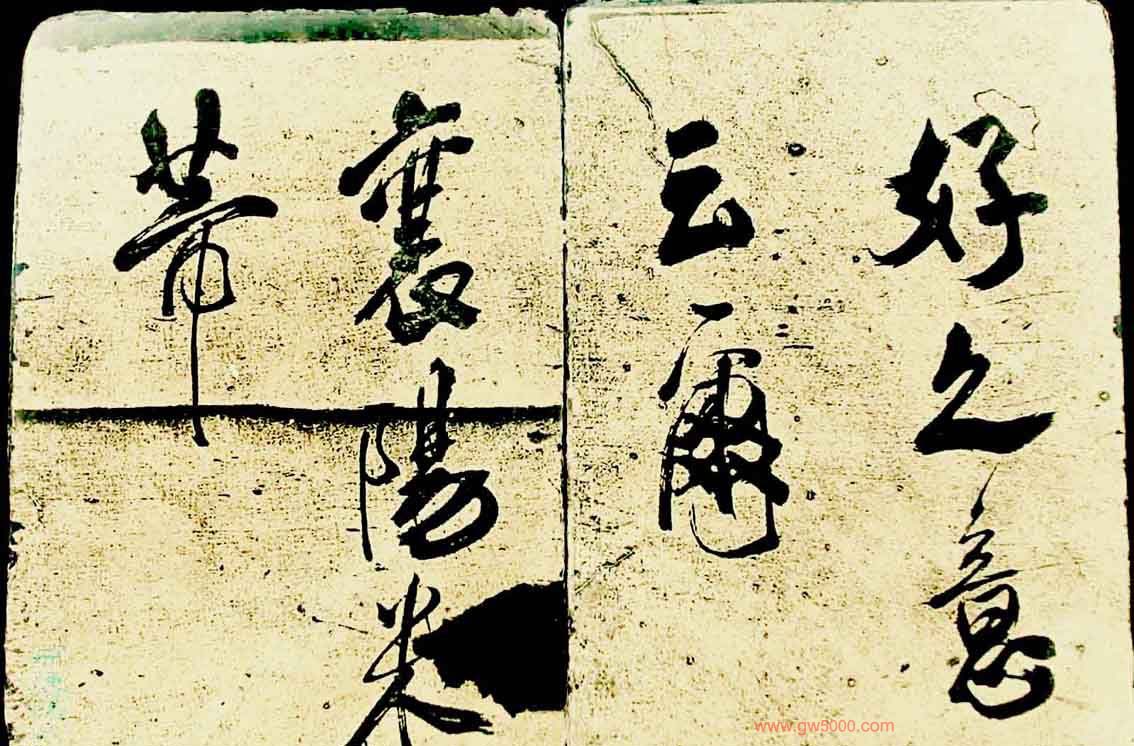 好之意
云爾
襄陽米
芾
www.gw5000.com